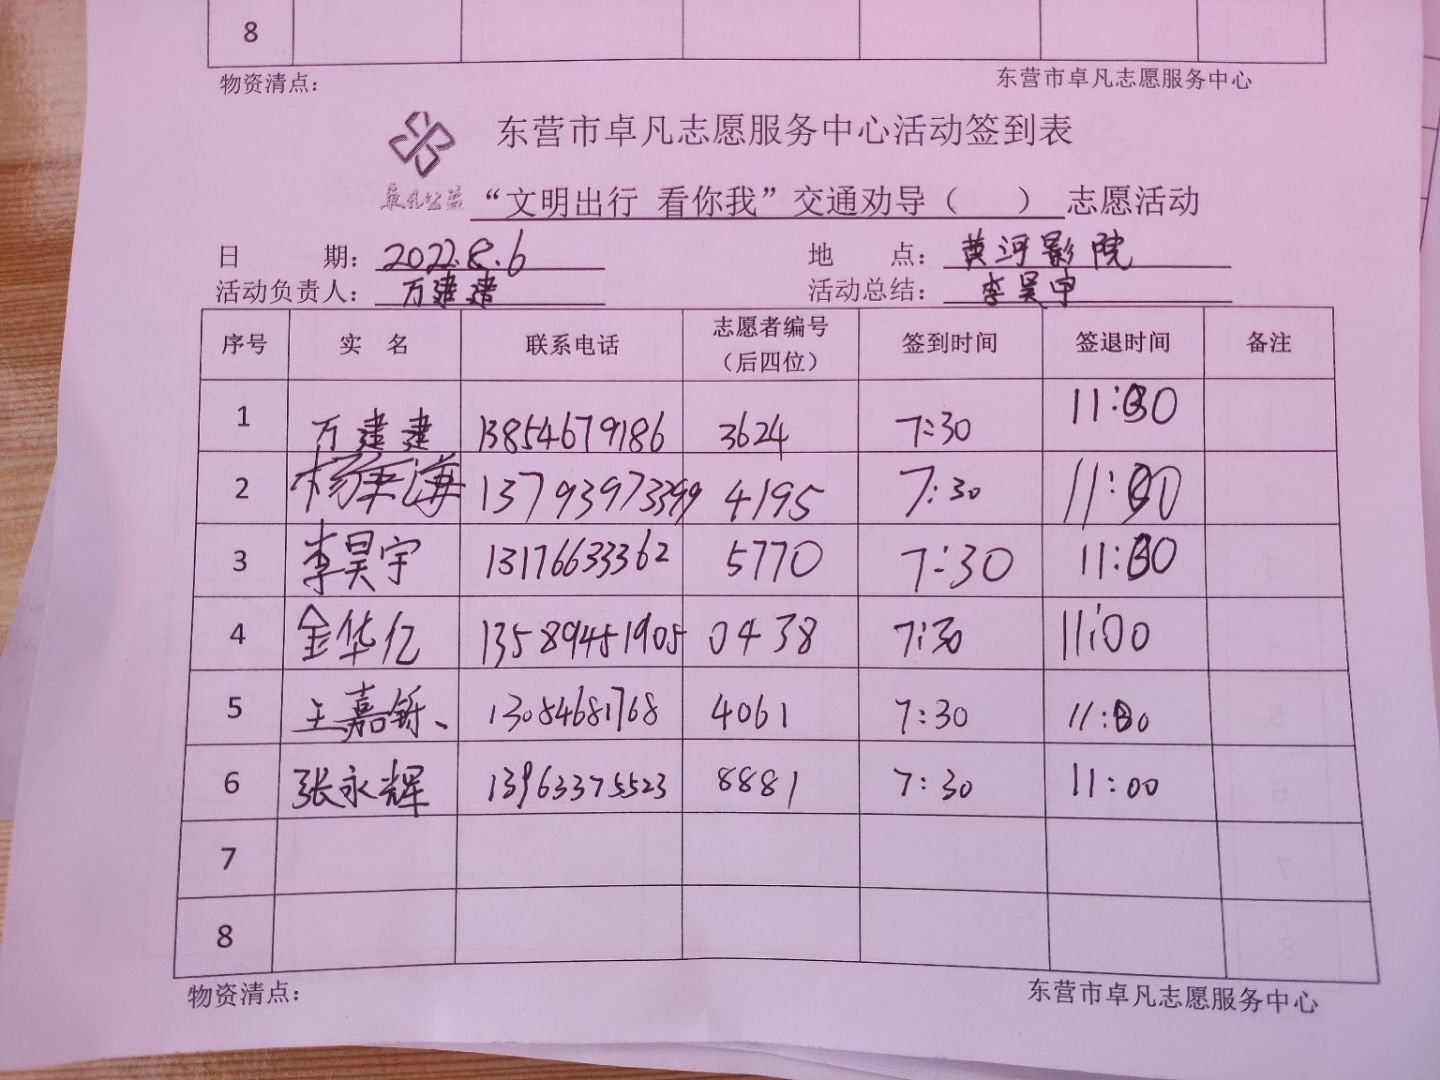 8
物资清点： 东营市卓凡志愿服务中心
东营市卓凡志愿服务中心活动签到表
卓凡公益 “文明出行 看你我”交通劝导（ ）志愿活动
日 期：2022.8.6 地 点：黄河影院
活动负责人：万建建 活动总结：李昊宇
序号 实 名 联系电话 志愿者编号（后四位） 签到时间 签退时间 备注
1 万建建 13854679186 3624 7:30 11:00
2 杨秉海 13793973399 4195 7:30 11:00
3 李昊宇 13176633362 5770 7:30 11:00
4 金华亿 13589451905 0438 7:30 11:00
5 王嘉铄、 13084681768 4061 7:30 11:00
6 张永辉 13963375523 8881 7:30 11:00
7
8
物资清点： 东营市卓凡志愿服务中心